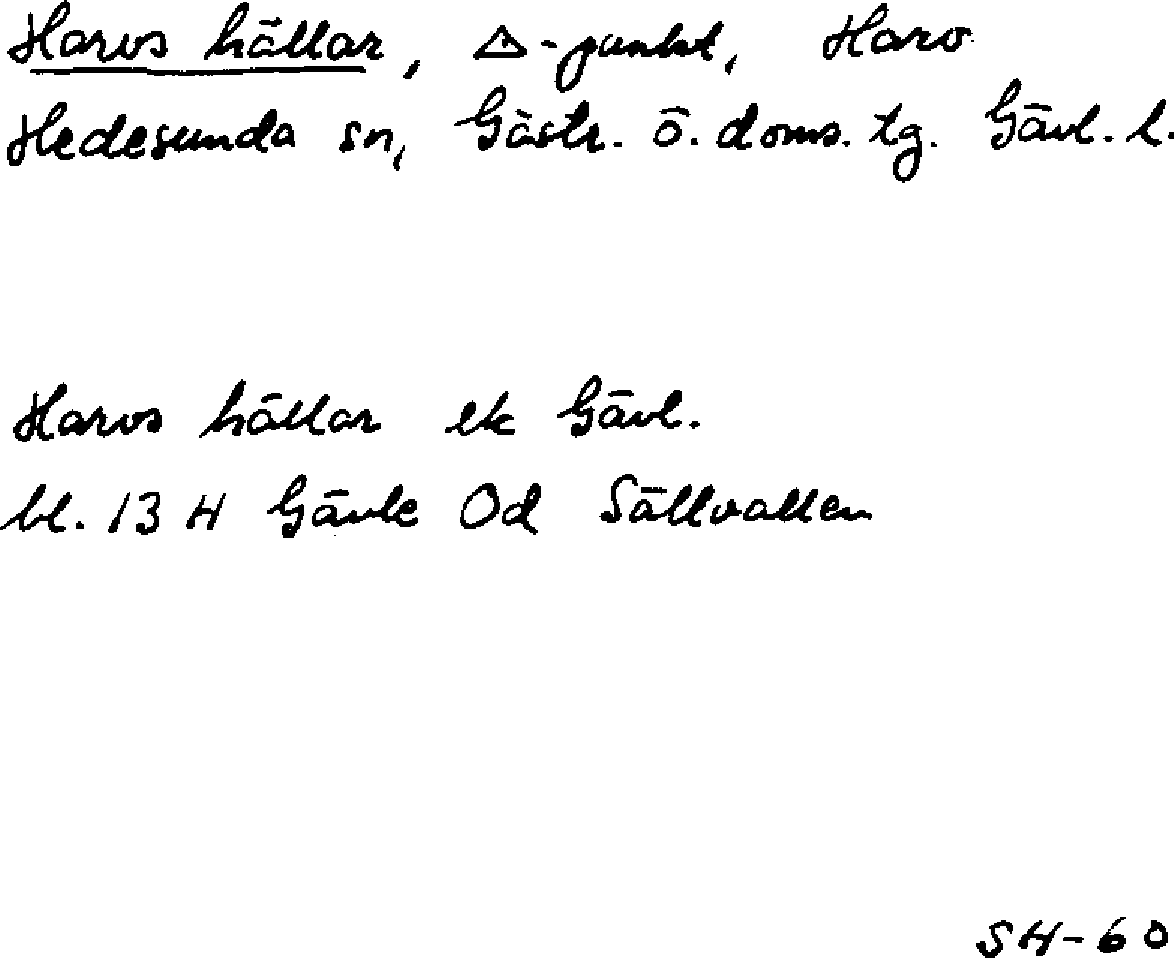 Harvs hällar, △-punkt, Harv
Hedesunda sn, Gästr. ö. doms. tg. Gävl. l.
Harvs hällar ek Gävl.
bl. 13 H Gävle Od Sällvallen
SH-60